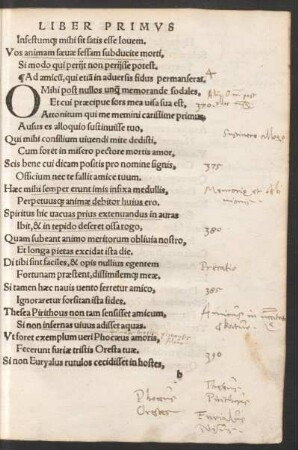 LIBER PRIMVS
Infestumq; mihi sit satis esse Iouem.
Vos animam sæuæ fessam subducite morti,
Si modo qui perijt non perijsse potest.
¶Ad amicũ, qui etiã in aduersis fidus permanserat.
O Mihi post nullos unq̃ memorande sodales,
Et cui præcipue sors mea uisa sua est,
Attonitum qui me memini carissime primus
Ausus es alloquio sustinuisse tuo,
Qui mihi consilium uiuendi mite dedisti,
Cum foret in misero pectore mortis amor,
Scis bene cui dicam positis pro nomine signis,
Officium nec te fallit amice tuum.
Hæc mihi semper erunt imis infixa medullis,
Perpetuusq; animæ debitor huius ero.
Spiritus hic uacuas prius extenuandus in auras
Ibit, & in tepido deseret ossa rogo,
Quam subeant animo meritorum obliuia nostro,
Et longa pietas excidat ista die.
Di tibi sint faciles, & opis nullius egentem
Fortunam præstent, dissimilemq; meæ.
Si tamen hæc nauis uento ferretur amico,
Ignoraretur forsitan ista fides.
Thesea Pirithous non tam sensisset amicum,
Si non infernas uiuus adisset aquas.
Vt foret exemplum ueri Phocæus amoris,
Fecerunt furiæ tristis Oresta tuæ.
Si non Euryalus rutulos cecidisset in hostes,
b
375
380
385
390
Orestes